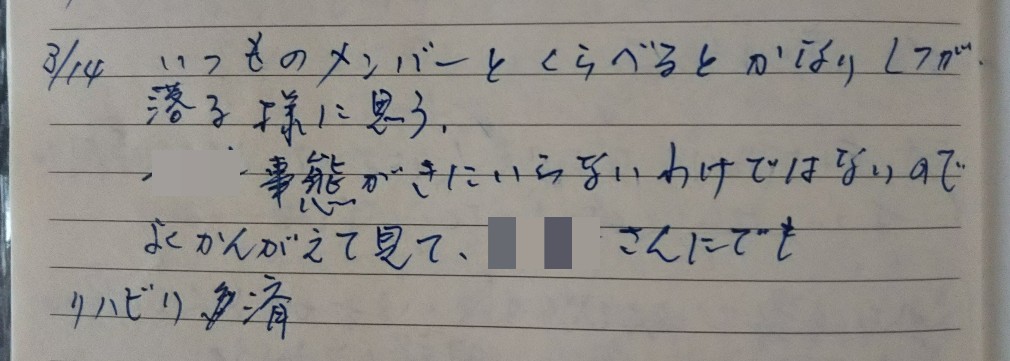 3/14 いつものメンバーとくらべるとかなりしつが
落る様に思う。
事態がきにいらないわけではないので
よくかんがえて見て、さんにでも
リハビリ済